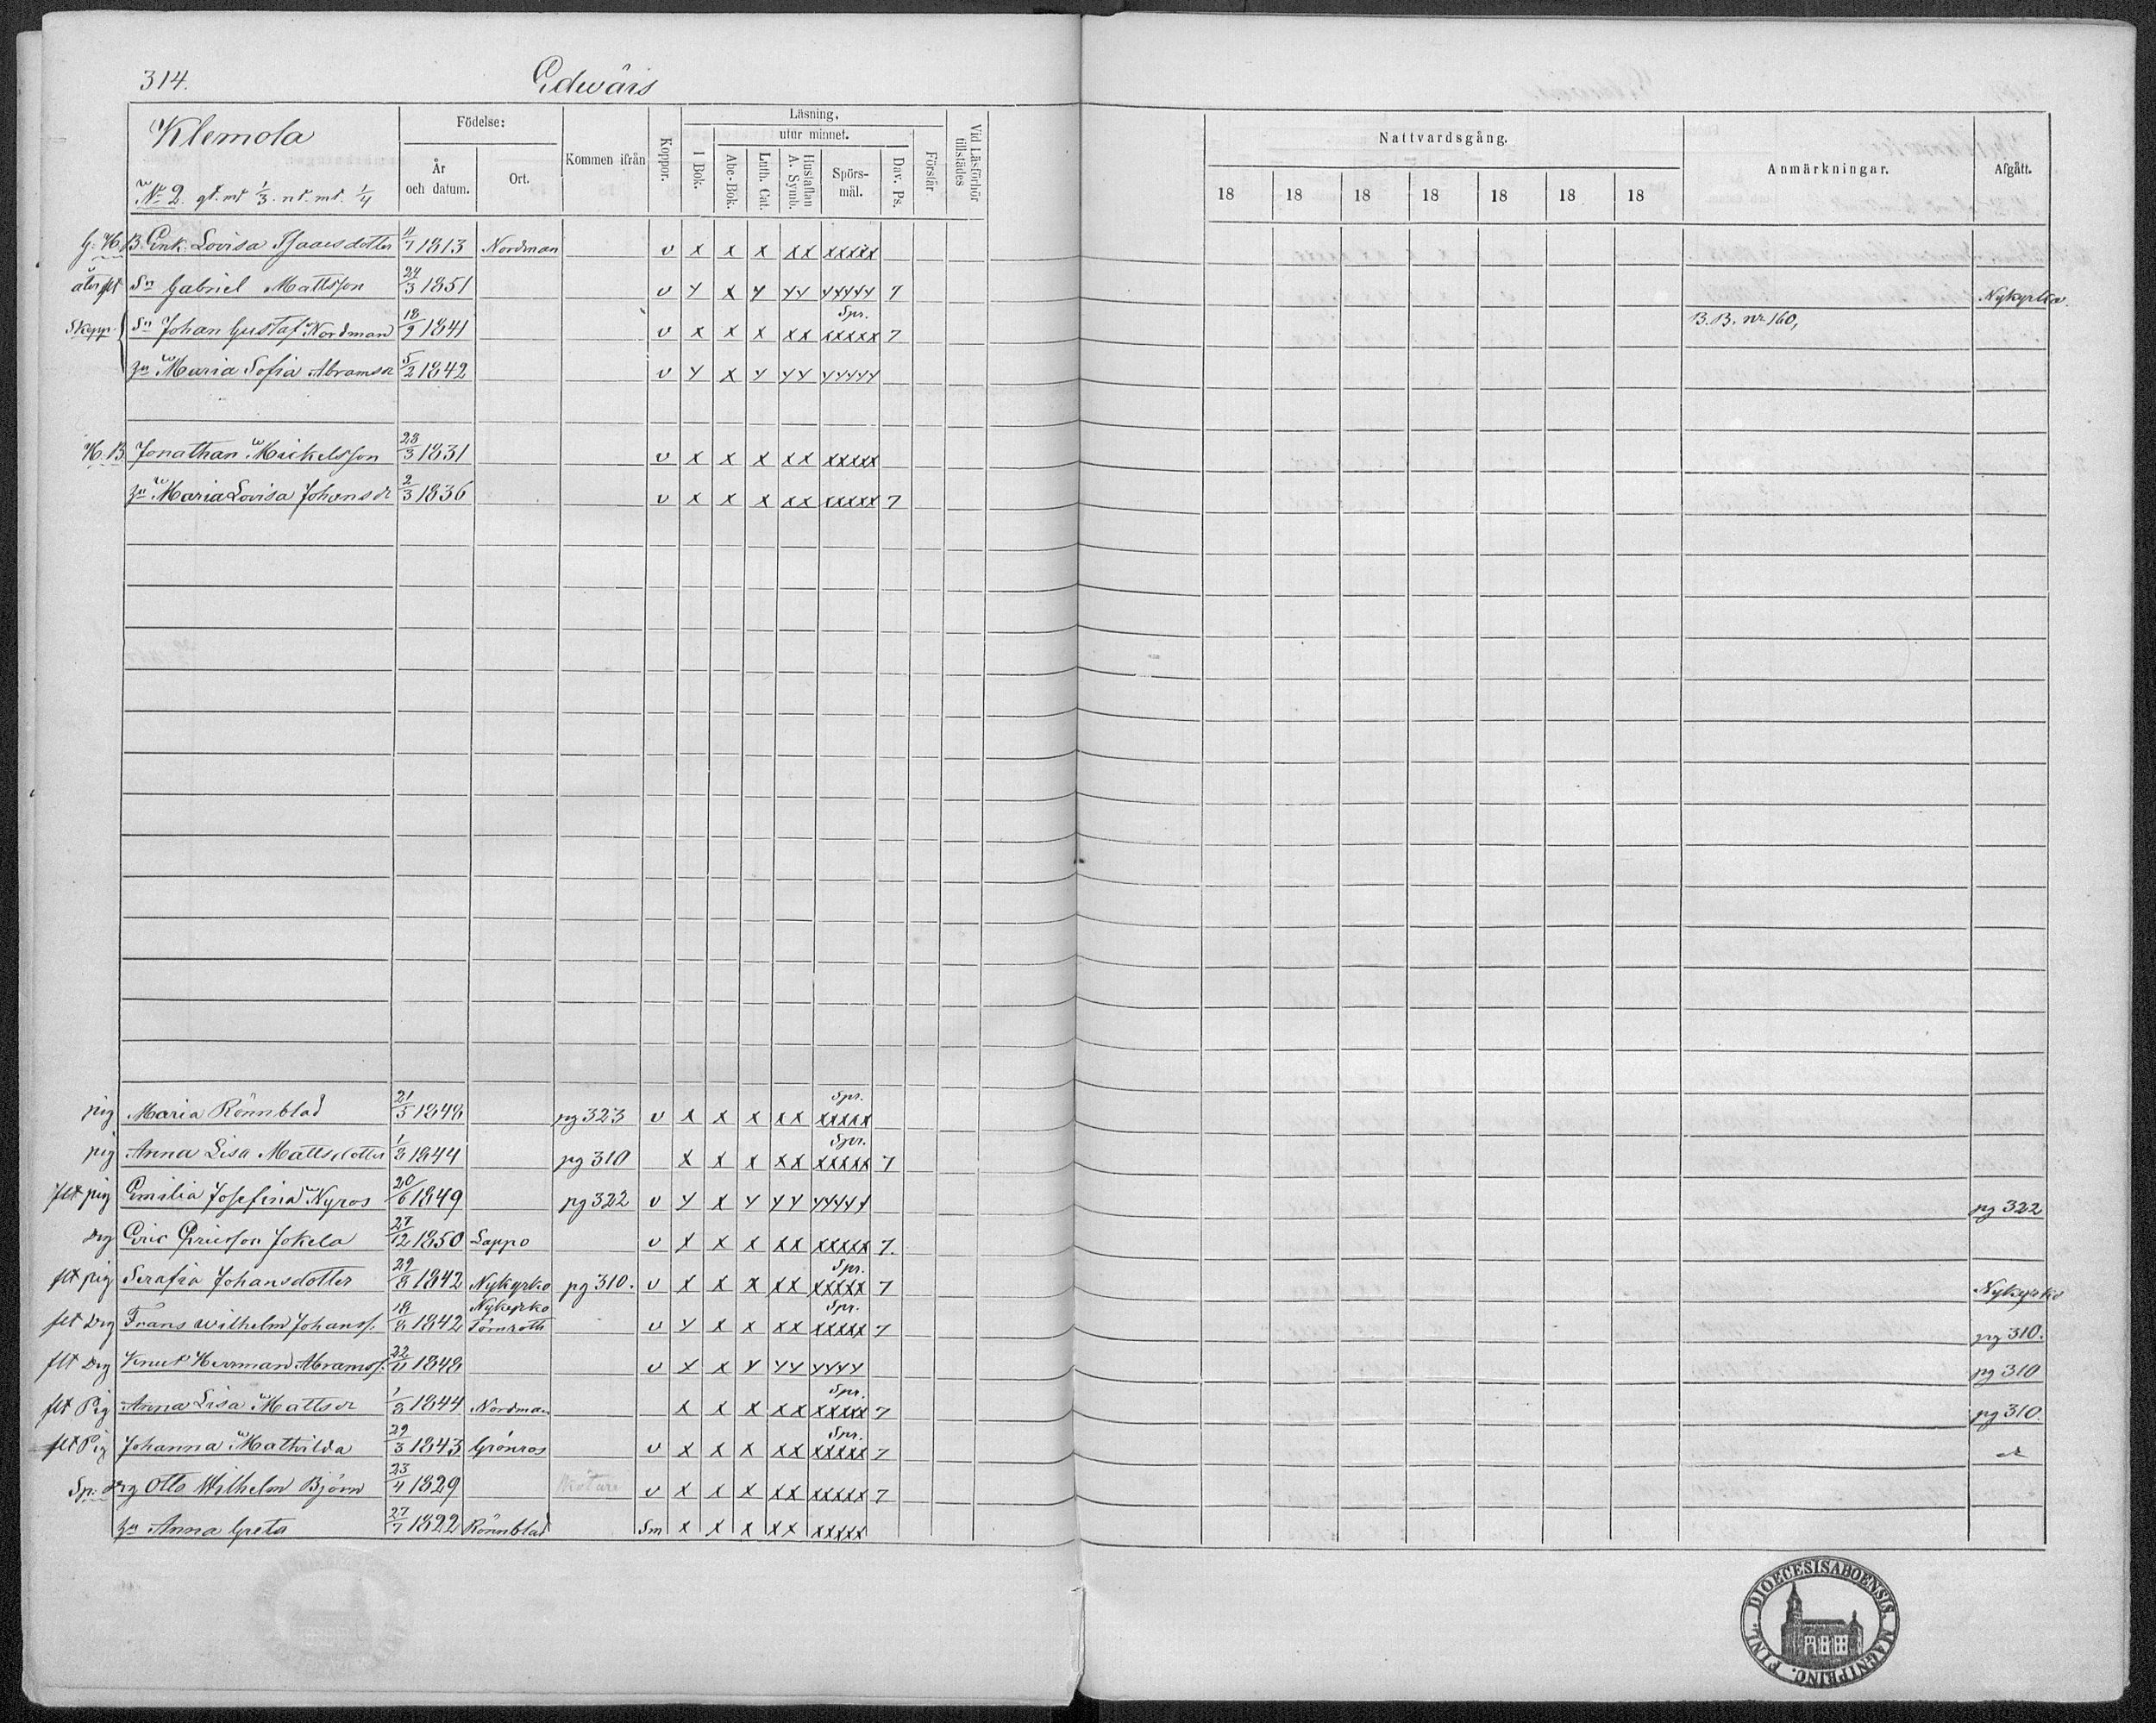 314. Edwäis
Klemola
No 2. gt. mt 1/3. nt. mt. 1/4
Födelse:
År och datum.
Ort.
Kommen ifrån
Koppor.
Läsning.
I Bok.
utur minnet.
Abc-Bok.
Luth. Cat.
Hustaflan A. Symb.
Spörs-mål.
Dav. Ps.
Förstår
Vid Läsförhör tillstädes
Nattvardsgång.
18 18 18 18 18 18 18
Anmärkningar.
Afgått.
G. H. B. Enk. Lovisa Isaacsdotter 11/7 1813 Nordman v x x x xx xxxxx
åter flt Sn Gabriel Mattsson 24/3 1851 v y x y yy yyyyy 7 Nykyrka
Skepp. Sn Johan Gustaf Nordman 18/9 1841 v x x x xx Spr. xxxxx 7 B.B. nr 160,
hu Maria Sofia Abramsdr 5/2 1842 v y x y yy yyyyy
H. B. Jonathan Mickelsson 23/3 1831 v x x x xx xxxxx
hu Maria Lovisa Johansdr 2/3 1836 v x x x xx xxxxx 7
pig Maria Rönnblad 21/5 1848 pg 323 v x x x xx Spr. xxxxx
pig Anna Lisa Mattsdotter 1/3 1844 pg 310 x x x xx Spr. xxxxx 7
flt pig Emilia Josefina Nyros 20/6 1849 pg 322 v y x y yy yyyyy pg 322
Drg Eric Ericsson Jokela 27/12 1850 Lappo v x x x xx xxxxx 7.
flt pig Serafia Johansdotter 29/8 1842 Nykyrko pg 310. v x x x xx Spr. xxxxx 7 Nykyrko
flt Drg Frans Wilhelm Johanss. 18/8 1842 Nykyrko Törnroth v y x x xx Spr. xxxxx 7 pg 310.
flt Drg Knut Herrman Abramss. 22/11 1848 v x x y yy yyyy pg 310
flt Pig Anna Lisa Mattsdr 1/3 1844 Nordman x x x xx Spr. xxxxx 7 pg 310.
flt Pig Johanna Mathilda 29/3 1843 Grönros v x x x xx Spr. xxxxx 7
Sp: Drg Otto Wilhelm Björn 23/4 1829 v x x x xx xxxxx 7
hu Anna Greta 27/7 1822 Rönnblad Sm x x x xx xxxxx
DIOECESIS ABOENSIS. MAGNI PRINC. FINL.